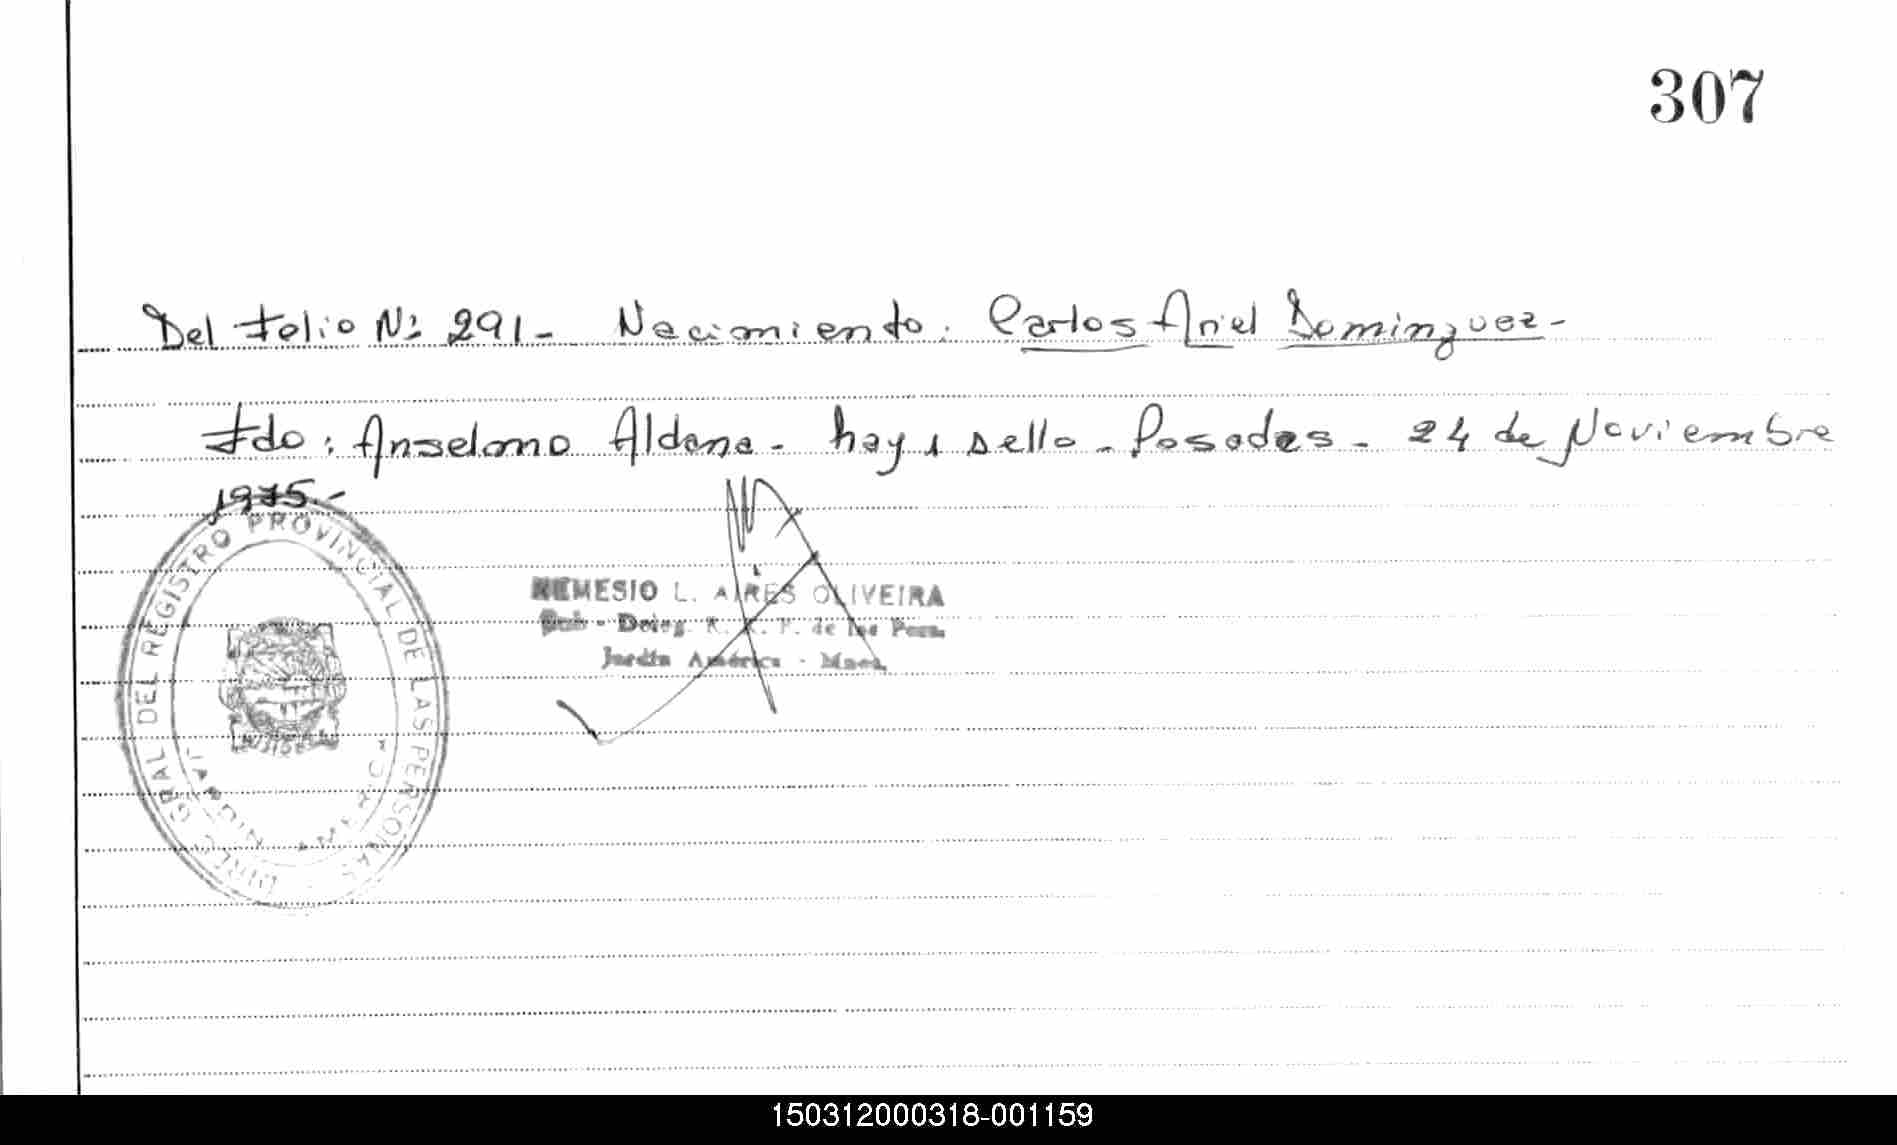 307
Del folio Nº 291 - Nacimiento: Carlos Ariel Dominguez -
Fdo: Anselmo Aldana - hay 1 sello - Posadas - 24 de Noviembre
1975.-
DIREC. GRAL DEL REGISTRO PROVINCIAL DE LAS PERSONAS
MISIONES
JARDIN AMERICA
NEMESIO L. AIRES OLIVEIRA
Sub - Deleg. R. P. de las Pers.
Jardín América - Mnes.
150312000318-001159